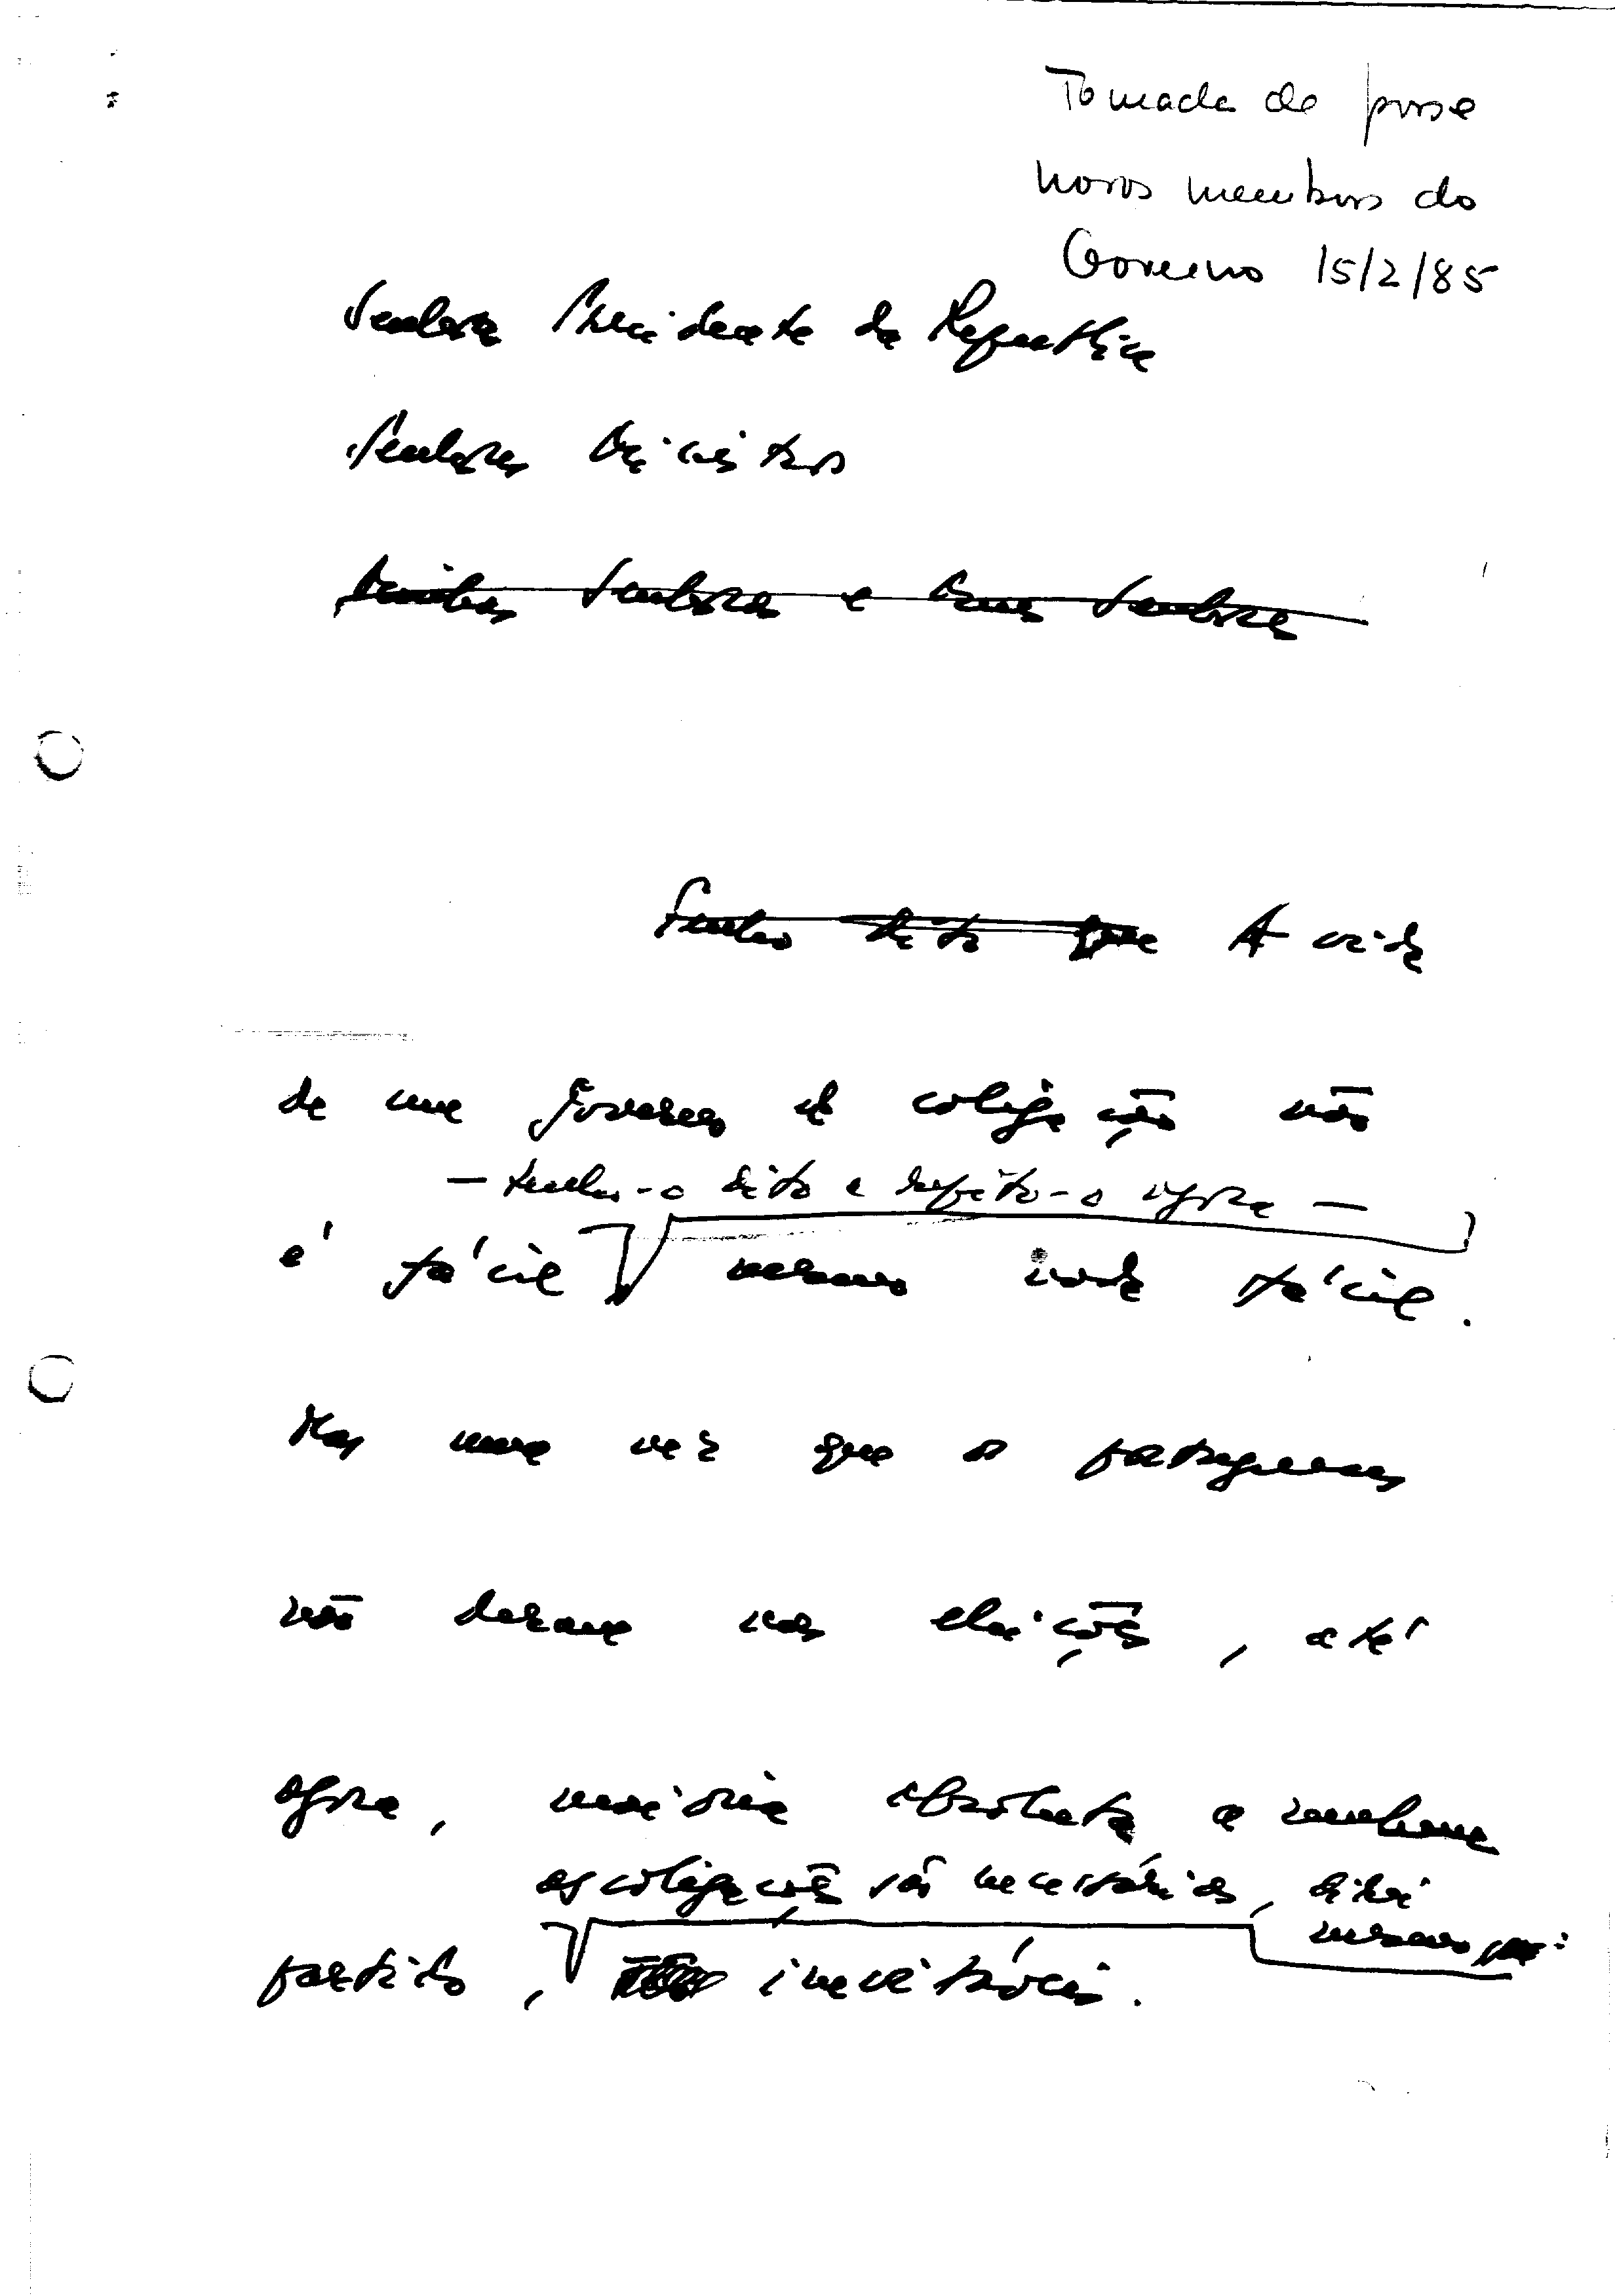 Tomada de posse
novos membros do
Governo 15/2/85
Senhor Presidente da República
Senhores Ministros
Minhas Senhoras e Meus Senhores
Tenho dito que A vida
de um governo de coligação não
— tenho-o dito e repito-o agora —
é fácil mesmo nada fácil.
Mas uma vez que os portugueses
não deram nas eleições, até
agora, maioria absoluta a nenhum
as coligações são necessárias, direi
mesmo
partido, inevitáveis.